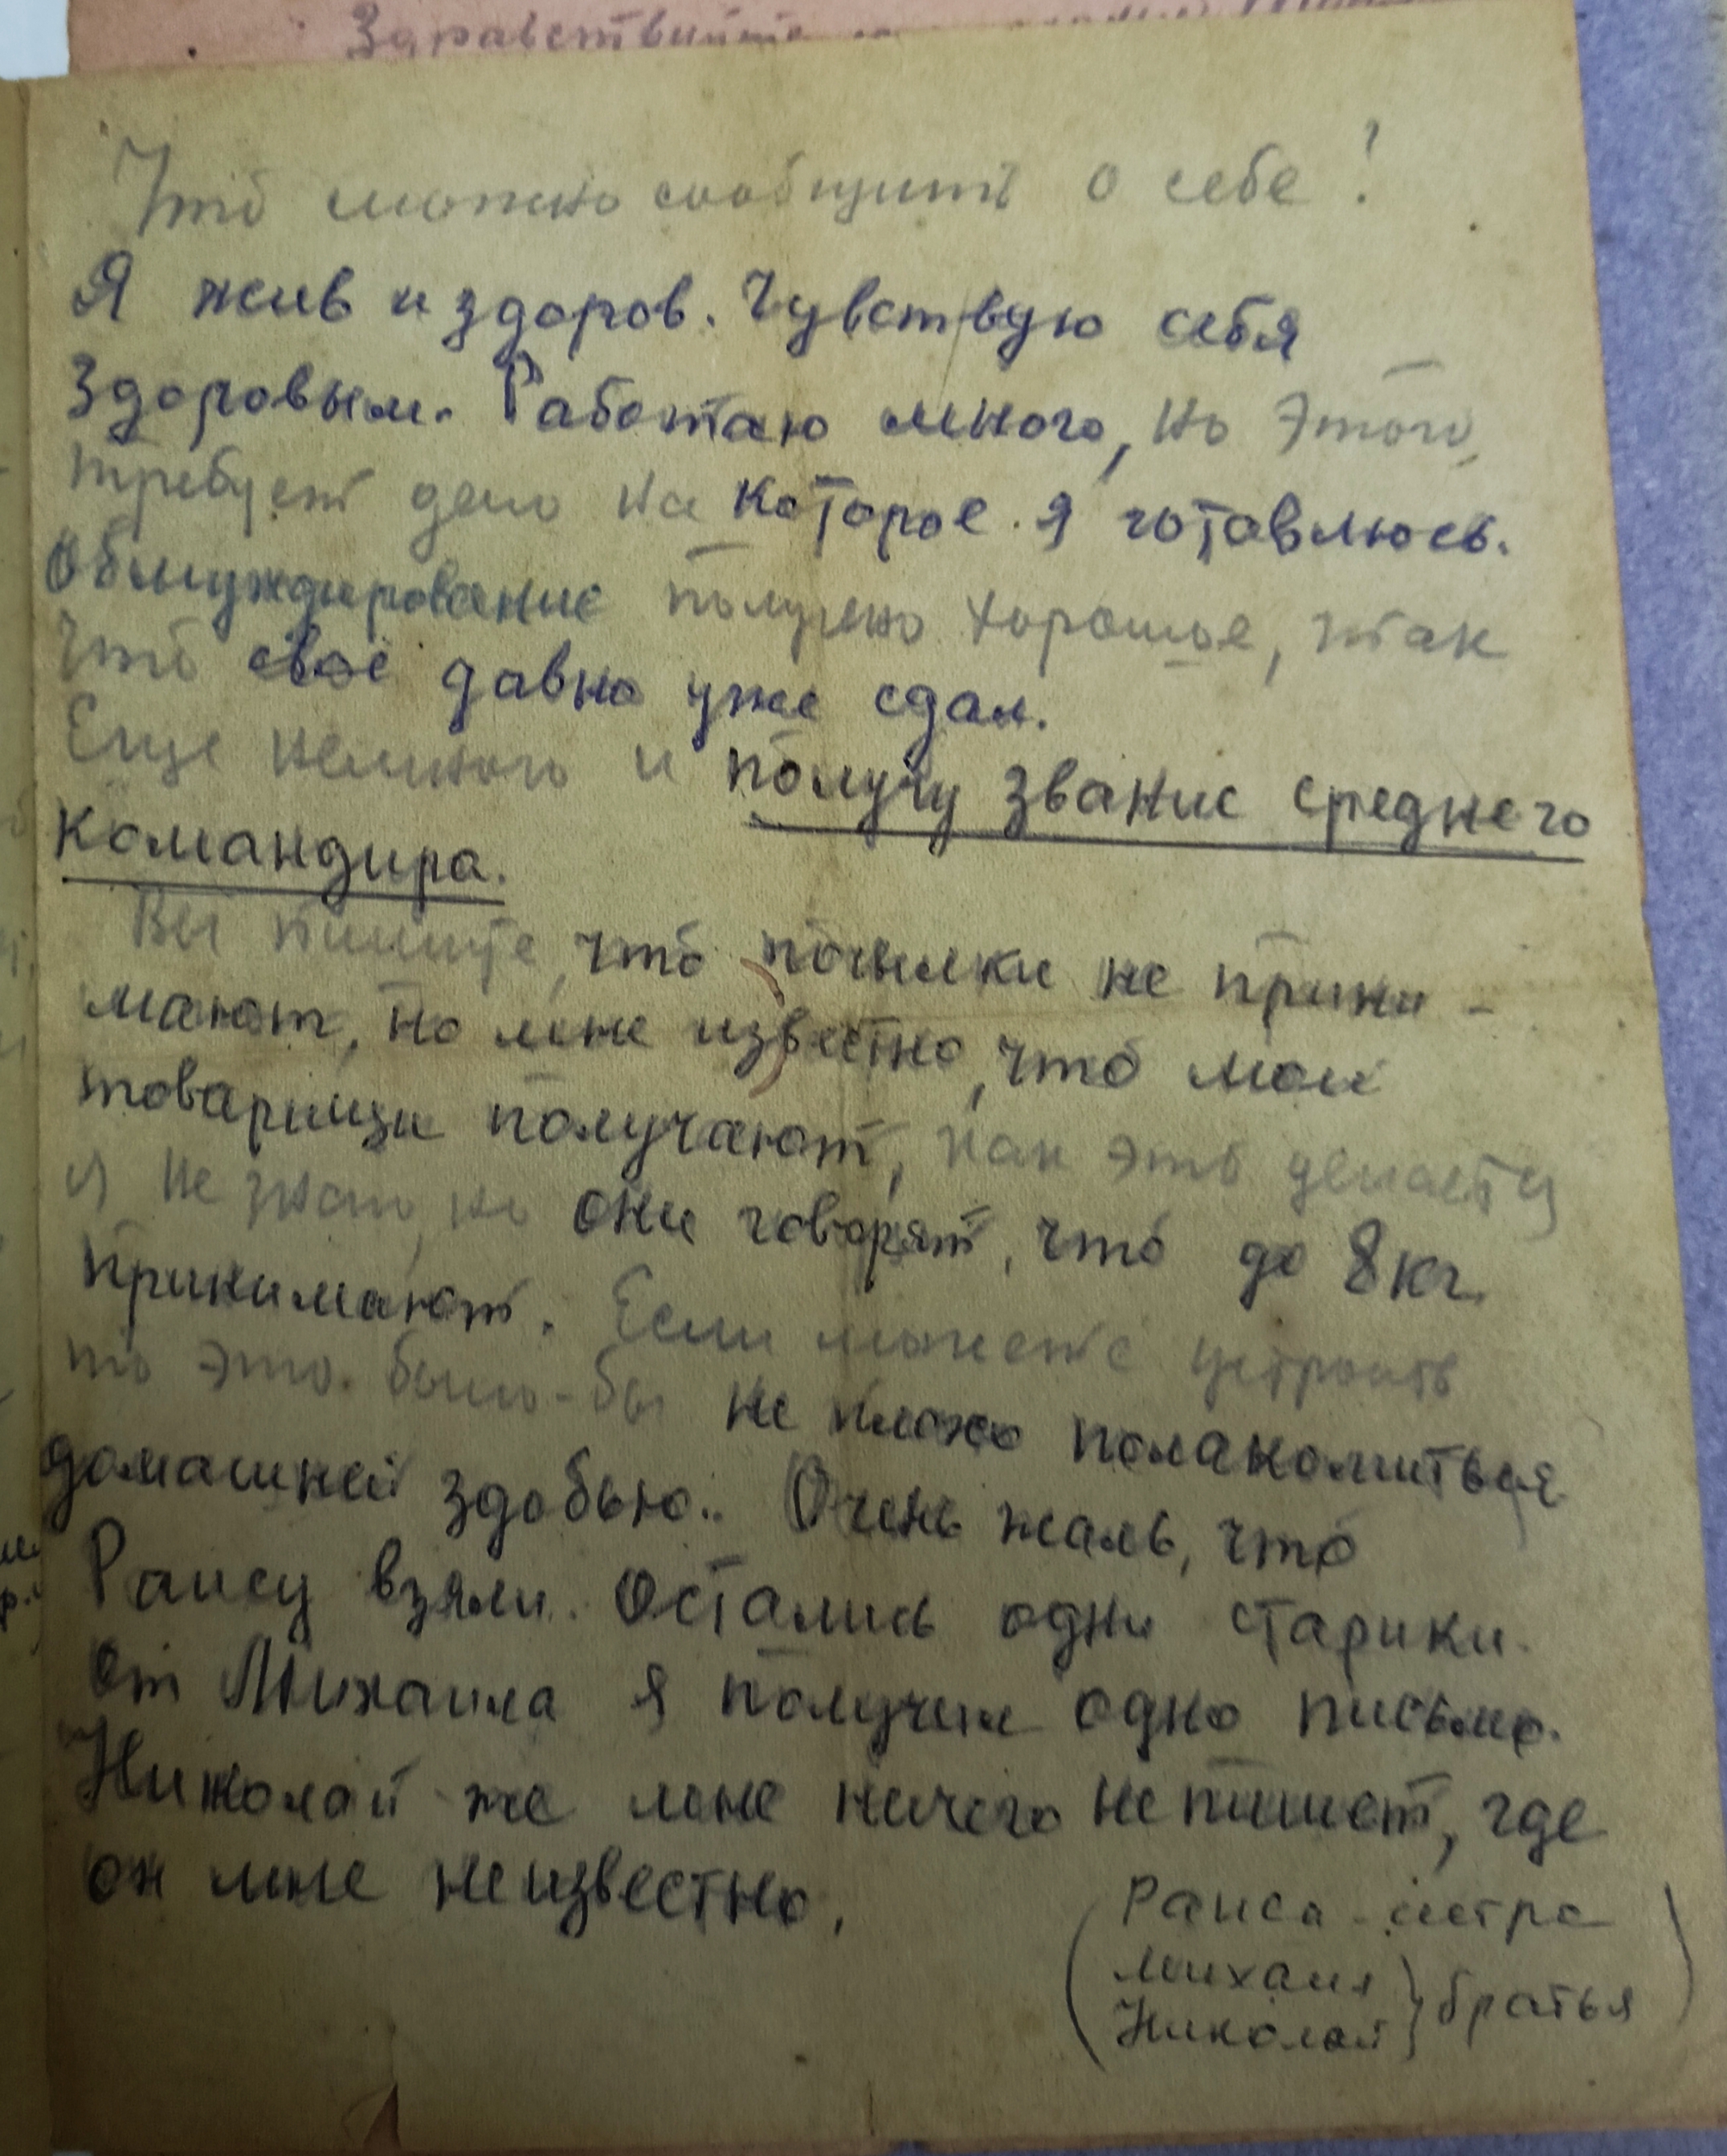 Здравствуйте
Что можно сообщить о себе!
Я жив и здоров. Чувствую себя
здоровым. Работаю много, но этого
требует дело на которое я готовлюсь.
Обмундирование получено хорошее, так
что своё давно уже сдал.
Еще немного и получу звание среднего
командира.
Вы пишите, что посылки не прини-
мают, но мне известно, что мои
товарищи получают, как это делаетця
я не знаю, но они говорят, что до 8 кг.
принимают. Если можете устроить
то это было-бы не плохо полакомиться
домашней здобью.. Очень жаль, что
Раису взяли. Остались одни старики.
От Михаила я получил одно письмо.
Николай же мне ничего не пишет, где
он мне неизвестно.
(Раиса - сестра
Михаил
Николай } братья)